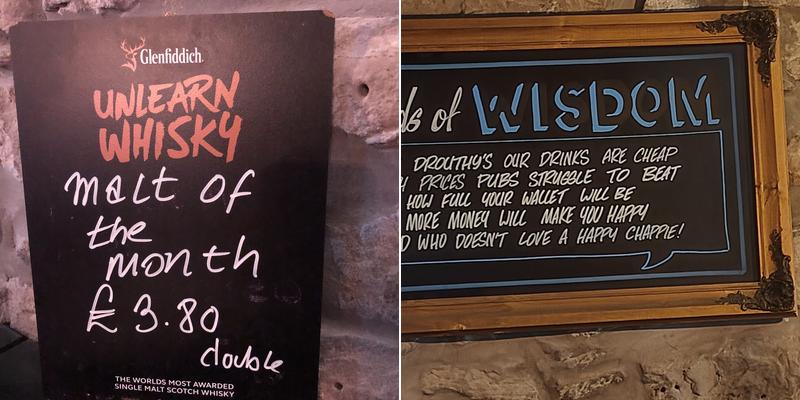 Glenfiddich
UNLEARN
WHISKY
malt of
the
month
£3.80
double
THE WORLDS MOST AWARDED
SINGLE MALT SCOTCH WHISKY
ds of WISDOM
DROUTHY'S OUR DRINKS ARE CHEAP
PRICES PUBS STRUGGLE TO BEAT
HOW FULL YOUR WALLET WILL BE
MORE MONEY WILL MAKE YOU HAPPY
WHO DOESN'T LOVE A HAPPY CHAPPIE!